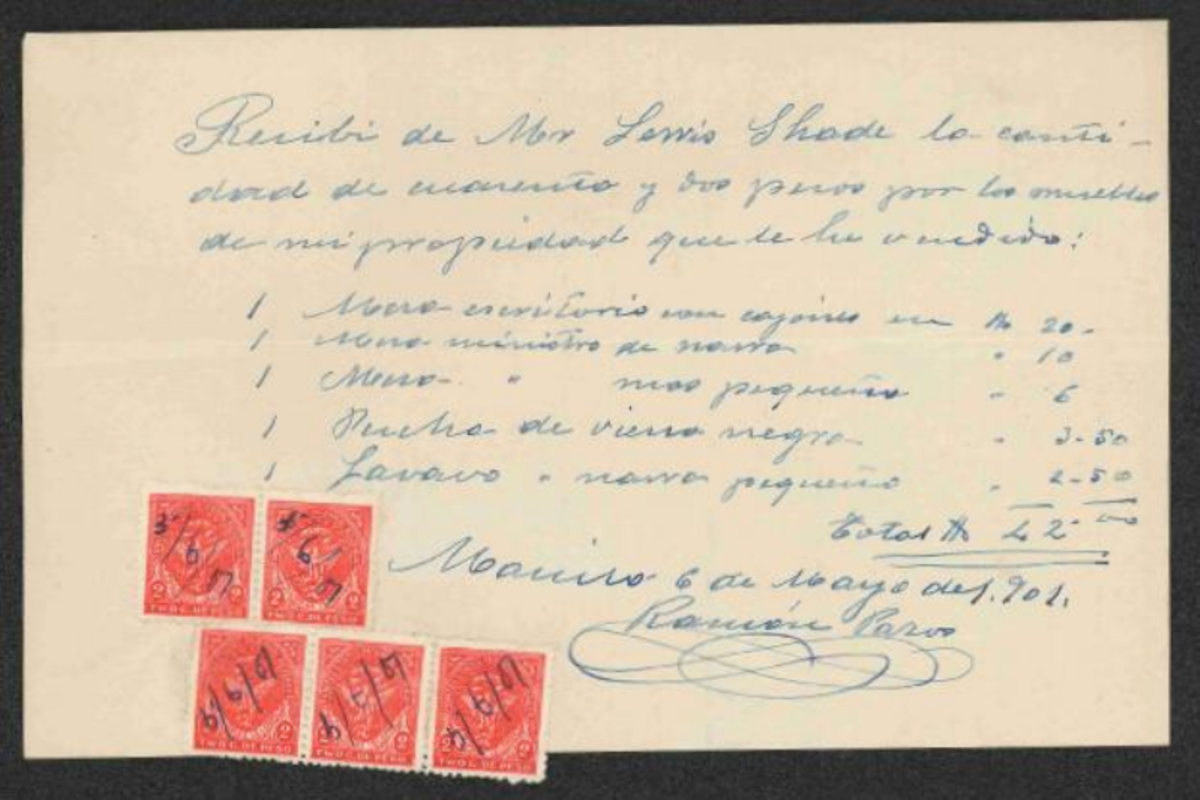 Recibi de Mr Lewis Shade la canti-
dad de cuarenta y dos pesos por los muebles
de mi propiedad que le he vendido:
1 Mesa escritorio con cajones en 20-
1 Mesa ministro de narra " 10
1 Mesa " mas pequeña " 6
1 Percha de viena negra " 3-50
1 Lavavo " narra pequeño " 2-50
Total 42-00
Manila 6 de Mayo de 1.901.
Ramón
2 2
TWO C. DE PESO
2 2
TWO C. DE PESO
2 2
TWO C. DE PESO
2 2
TWO C. DE PESO
2 2
TWO C. DE PESO